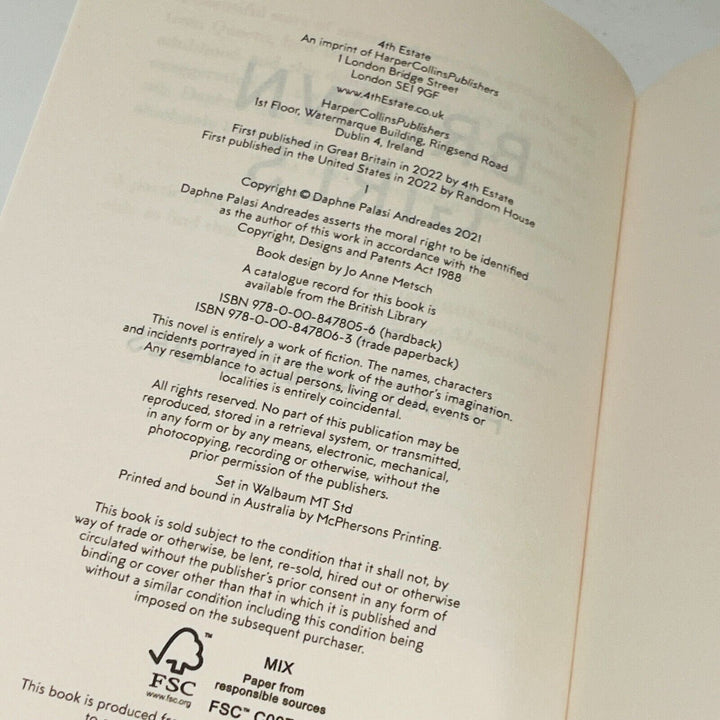 4th Estate
An imprint of HarperCollinsPublishers
1 London Bridge Street
London SE1 9GF
www.4thEstate.co.uk
HarperCollinsPublishers
1st Floor, Watermarque Building, Ringsend Road
Dublin 4, Ireland
First published in Great Britain in 2022 by 4th Estate
First published in the United States in 2022 by Random House
1
Copyright © Daphne Palasi Andreades 2021
Daphne Palasi Andreades asserts the moral right to be identified
as the author of this work in accordance with the
Copyright, Designs and Patents Act 1988
Book design by Jo Anne Metsch
A catalogue record for this book is
available from the British Library
ISBN 978-0-00-847805-6 (hardback)
ISBN 978-0-00-847806-3 (trade paperback)
This novel is entirely a work of fiction. The names, characters
and incidents portrayed in it are the work of the author's imagination.
Any resemblance to actual persons, living or dead, events or
localities is entirely coincidental.
All rights reserved. No part of this publication may be
reproduced, stored in a retrieval system, or transmitted,
in any form or by any means, electronic, mechanical,
photocopying, recording or otherwise, without the
prior permission of the publishers.
Set in Walbaum MT Std
Printed and bound in Australia by McPhersons Printing.
This book is sold subject to the condition that it shall not, by
way of trade or otherwise, be lent, re-sold, hired out or otherwise
circulated without the publisher's prior consent in any form of
binding or cover other than that in which it is published and
without a similar condition including this condition being
imposed on the subsequent purchaser.
FSC
www.fsc.org
MIX
Paper from
responsible sources
FSC™
This book is produced
to